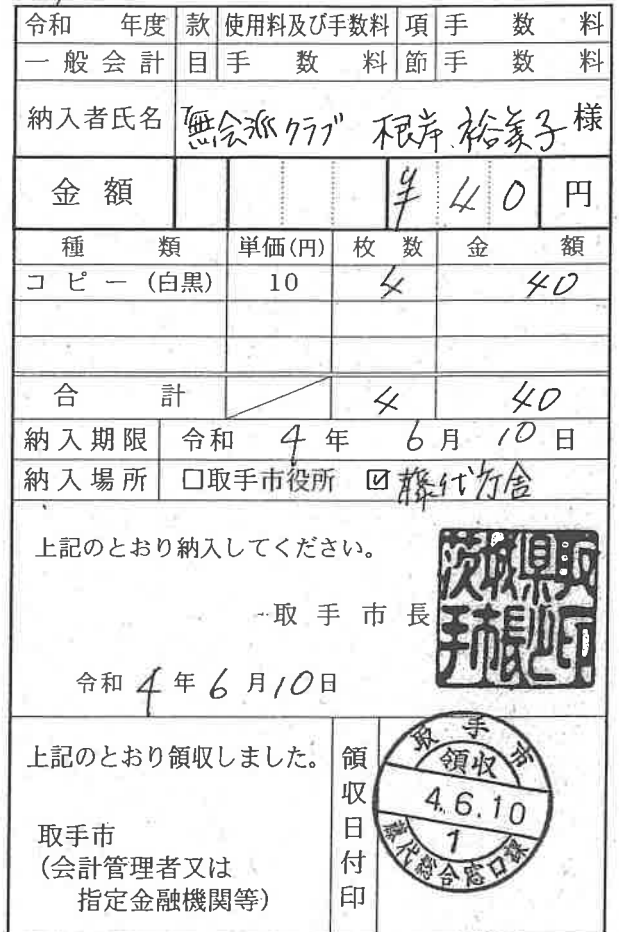 令和 年度 款 使用料及び手数料 項 手数料
一般会計 目 手数料 節 手数料
納入者氏名 無会派クラブ 根岸 裕美子 様
金額 ¥40 円
種類 単価(円) 枚数 金額
コピー(白黒) 10 4 40
合計 4 40
納入期限 令和 4 年 6 月 10 日
納入場所 □取手市役所 ☑藤代庁舎
上記のとおり納入してください。
取手市長
茨城県取手市長之印
令和 4 年 6 月 10 日
上記のとおり領収しました。
取手市
(会計管理者又は
指定金融機関等)
領収日付印
取手市
領収
4.6.10
1
藤代総合窓口課